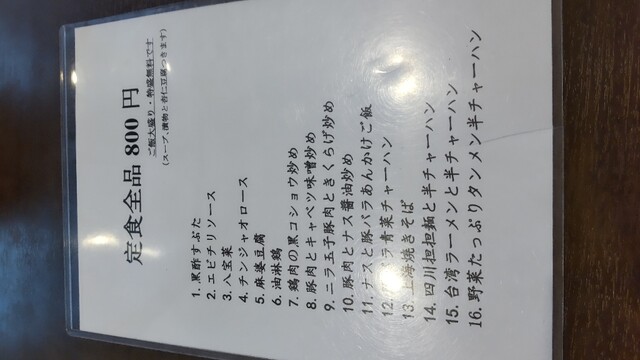 定食全品 800 円
ご飯大盛り・特盛無料です
(スープ、漬物と杏仁豆腐つきます)
1. 黒酢すぶた
2. エビチリソース
3. 八宝菜
4. チンジャオロース
5. 麻婆豆腐
6. 油淋鶏
7. 鶏肉の黒コショウ炒め
8. 豚肉とキャベツ味噌炒め
9. ニラ玉子豚肉ときくらげ炒め
10. 豚肉とナス醤油炒め
11. ナスと豚バラあんかけご飯
12. 青菜チャーハン
13. 上海焼きそば
14. 四川担担麺と半チャーハン
15. 台湾ラーメンと半チャーハン
16. 野菜たっぷりタンメン半チャーハン